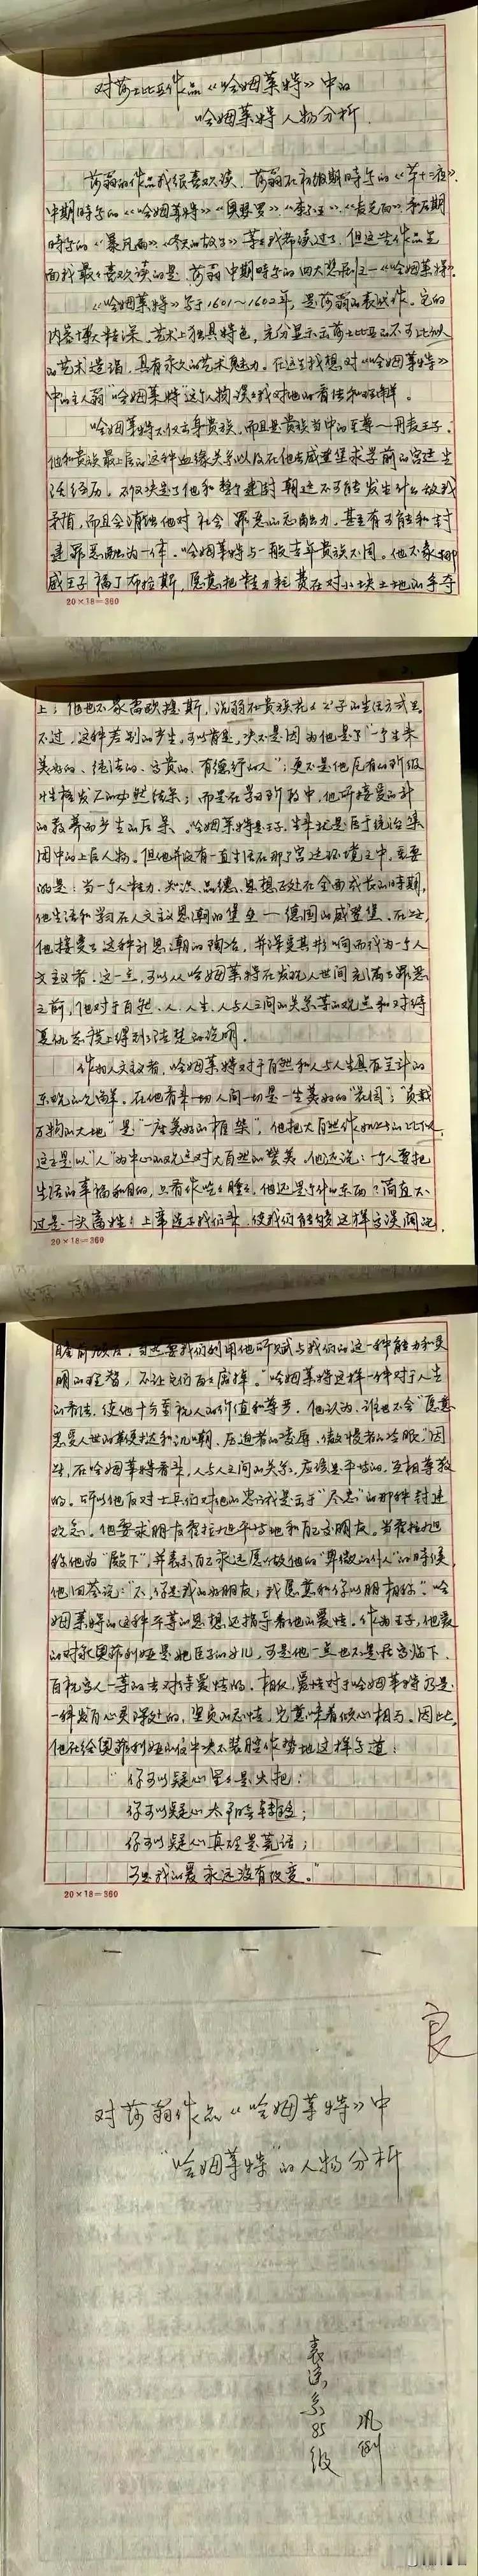 对莎士比亚作品《哈姆莱特》中的
哈姆莱特人物分析.
莎翁的作品我很喜欢读.莎翁在初期时写的《第十二夜》.
中期时写的《哈姆莱特》《奥瑟罗》《李尔王》《麦克白》和后期
时写的《暴风雨》《冬天的故事》等等我都读过了,但这些作品里
面我最喜欢读的是莎翁中期时写的四大悲剧之一《哈姆莱特》.
《哈姆莱特》写于1601~1602年,是莎翁的代表作.它的
内容博大精深.艺术上独具特色,充分显示出莎士比亚的不可比拟
的艺术造诣,具有永久的艺术魅力.在这里我想对《哈姆莱特》
中的主人翁"哈姆莱特"这个人物谈谈我对他的看法和理解.
哈姆莱特不仅出身贵族,而且是贵族当中的至尊—丹麦王子.
他和贵族最上层的这种血缘关系以及在他去威登堡求学前的宫廷生
活经历,不仅决定了他和整个封建朝廷不可能发生什么敌我
矛盾,而且会消蚀他对社会罪恶的感触力,甚至有可能和封
建罪恶融为一体.哈姆莱特与一般青年贵族不同.他不象挪
威王子福丁布拉斯,愿意把精力耗费在对小块土地的争夺
20×18=360
上;他也不象雷欧提斯,沉溺在贵族花花公子的生活方式里.
不过,这种差别的产生,可以肯定,决不是因为他是个"一个生来
美好的、纯洁的、高贵的、有德行的人";更不是他应有的阶级
性格发展的必然结果;而是在学习阶段中,他所接受的新
的教养而产生的后果.哈姆莱特是王子,生来就是居于统治集
团中的上层人物.但他并没有一直生活在那个宫廷环境之中,重要
的是:当一个人精力、知识、品德、思想正处在全面成长的时期,
他生活和学习在人文主义思潮的堡垒—德国的威登堡.在这,
他接受了这种新思潮的陶冶,并深受其影响而成为一个人
文主义者.这一点,可以从哈姆莱特在发现人世间充满了罪恶
之前,他对于自然、人、人生、人与人之间的关系等的观点和对待
复仇态度上得到了清楚的说明.
作为人文主义者,哈姆莱特对于自然和人与人生具有全新的
乐观的见解.在他看来一切人间一切是一生美好的"花园";"负载
万物的大地"是"一座美好的框架",他把大自然作如此的比似,
这正是以"人"为中心的观点对大自然的赞美.他还说:一个人要把
生活的幸福和目的,只看作吃吃睡睡,他还是个什么东西?简直不
过是一头畜牲!上帝造了我们来,使我们能够这样高谈阔论,
20×18=360
瞻前顾后,当然要我们利用他所赋与我们的这一种能力和灵
明的理智,不让它们白白废掉."哈姆莱特这样一种对于人生
的看法,使他十分重视人的价值和尊严.他认为,谁也不会"愿意
忍受人世的鞭挞和讥嘲、压迫者的凌辱、傲慢者的冷眼".因
此,在哈姆莱特看来,人与人之间的关系,应该是平等的、互相尊敬
的.所以他反对士兵们对他的忠诚是出于"尽忠"的那种封建
观念.他要求朋友霍拉旭平等地和自己交朋友.当霍拉旭
称他为"殿下",并表示自己永远愿做他的"卑微的仆人"的时候,
他回答说:"不,你是我的好朋友;我愿意和你以朋友相称".哈
姆莱特的这种平等的思想还指导着他的爱情.作为王子,他爱
的对象奥菲利娅是她臣子的女儿,可是他一点也不是居高临下.
自视高人一等的去对待爱情的.相反,爱情对于哈姆莱特乃是
一种发自心灵深处的,坚贞的感情,它意味着倾心相与.因此,
他在给奥菲利娅的信中决不装腔作势地这样写道:
"你可以疑心星星是火把;
你可以疑心太阳会移转;
你可以疑心真理是谎话;
可是我的爱永远没有改变."
20×18=360
良
对莎翁作品《哈姆莱特》中
"哈姆莱特"的人物分析
表演系85级
巩俐